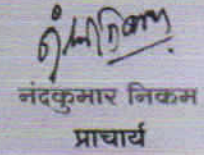 नंदकुमार निकम
प्राचार्य